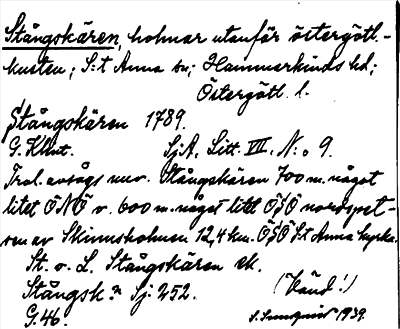 Stångskären, holmar utanför östergötl.-
kusten; S:t Anna sn; Hammarkinds hd;
Östergötl. l.
Stångskären 1789.
G. Klint. Sj.A. Litt. VII. N:o 9.
Trol. avsågs nuv. Stångskären 700 m. något
litet ÖNÖ v. 600 m. något litet ÖSÖ nordspet-
sen av Skinnsholmen 12,4 km. ÖSÖ S:t Anna kyrka.
St. o. L. Stångskären Ek.
Stångsk:n Sj. 252.
G. 46. (Vänd!)
1939.